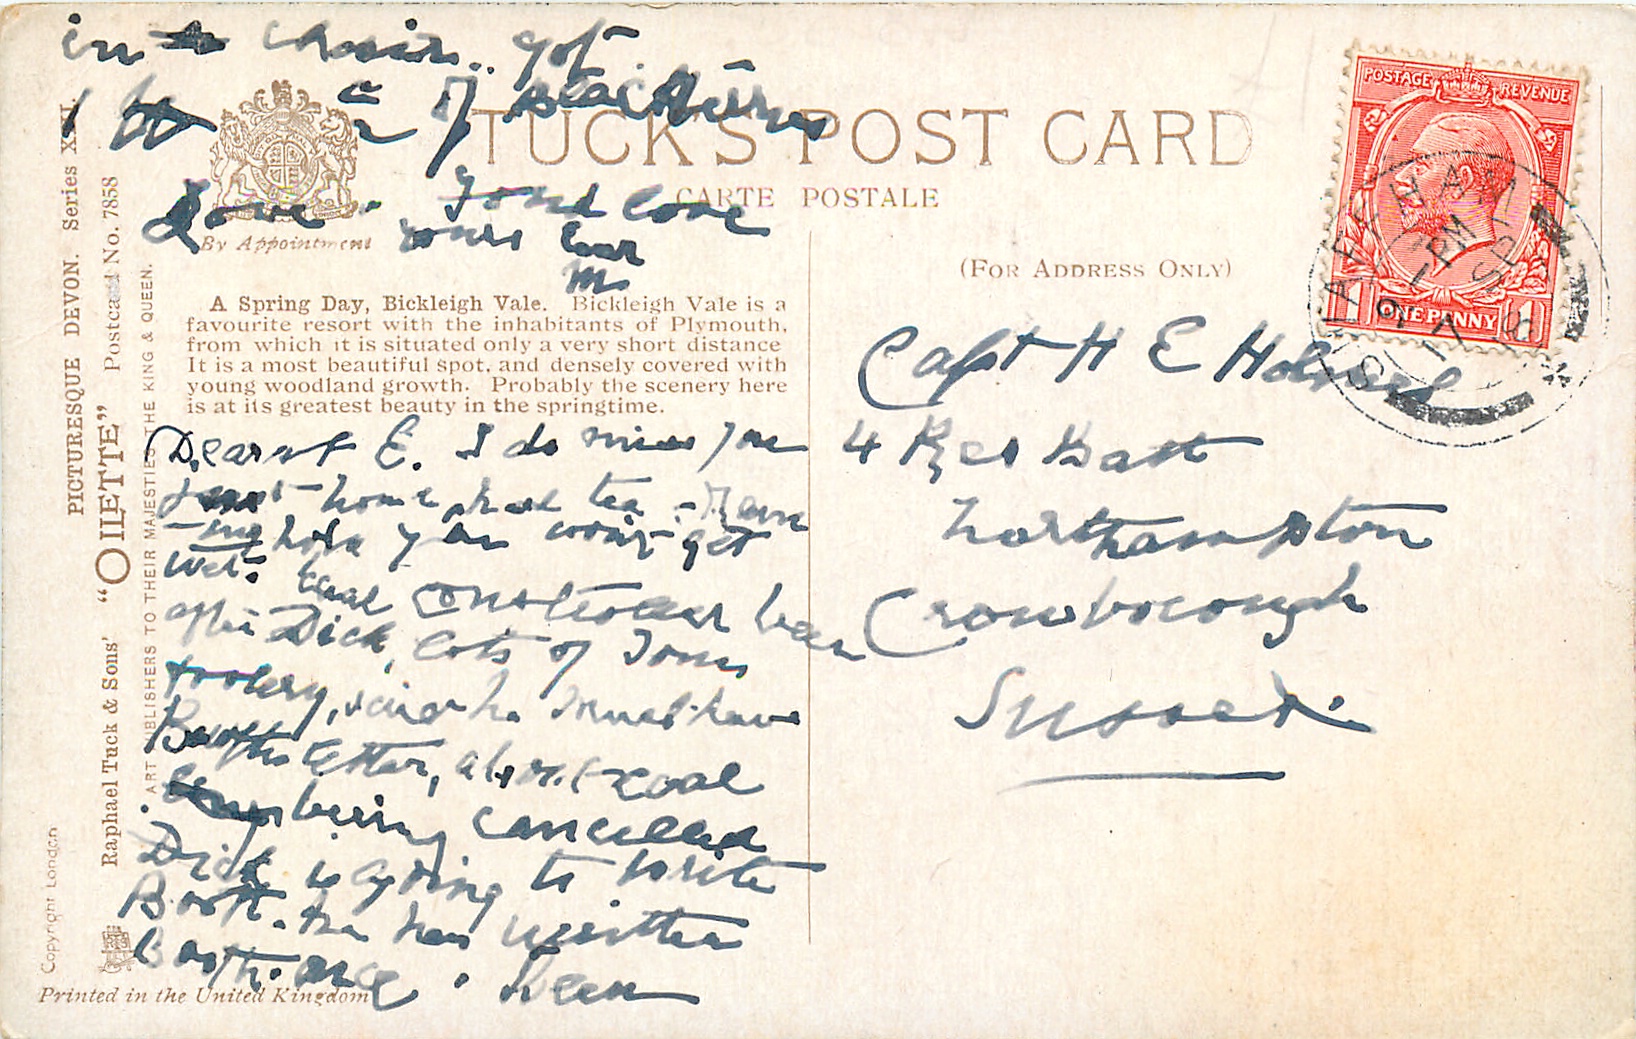 in chair.. got
1 of blackberries
Love. Fond love
yours
M
TUCK'S POST CARD
CARTE POSTALE
(FOR ADDRESS ONLY)
By Appointment
A Spring Day, Bickleigh Vale. Bickleigh Vale is a
favourite resort with the inhabitants of Plymouth,
from which it is situated only a very short distance
It is a most beautiful spot, and densely covered with
young woodland growth. Probably the scenery here
is at its greatest beauty in the springtime.
Dearest E. I do miss you
Just home had tea
hope you won't get
wet. coal controller been
after Dick, lots of Tom
foolery, said he must have
Booth's letter, about coal
being cancelled
Dick is going to write
Booth. he has written
Booth. once. been
Capt H E Holmes
4 Res Batt
Northampton
Crowborough
Sussex.
POSTAGE REVENUE
ONE PENNY
1 1
SYDENHAM
PM
SP
18
PICTURESQUE DEVON. Series XXI.
Raphael Tuck & Sons' "OILETTE" Postcard No. 7858
ART PUBLISHERS TO THEIR MAJESTIES THE KING & QUEEN.
Copyright London
Printed in the United Kingdom